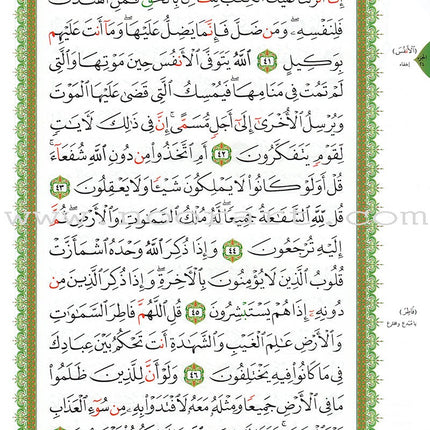 فَلِنَفْسِهِۦ ۖ وَمَن ضَلَّ فَإِنَّمَا يَضِلُّ عَلَيْهَا ۖ وَمَآ أَنتَ عَلَيْهِم
بِوَكِيلٍ ٤١ ٱللَّهُ يَتَوَفَّى ٱلْأَنفُسَ حِينَ مَوْتِهَا وَٱلَّتِى
لَمْ تَمُتْ فِى مَنَامِهَا ۖ فَيُمْسِكُ ٱلَّتِى قَضَىٰ عَلَيْهَا ٱلْمَوْتَ
وَيُرْسِلُ ٱلْأُخْرَىٰٓ إِلَىٰٓ أَجَلٍ مُّسَمًّى ۚ إِنَّ فِى ذَٰلِكَ لَـَٔايَـٰتٍ
لِّقَوْمٍ يَتَفَكَّرُونَ ٤٢ أَمِ ٱتَّخَذُوا۟ مِن دُونِ ٱللَّهِ شُفَعَآءَ ۚ
قُلْ أَوَلَوْ كَانُوا۟ لَا يَمْلِكُونَ شَيْـًٔا وَلَا يَعْقِلُونَ ٤٣
قُل لِّلَّهِ ٱلشَّفَـٰعَةُ جَمِيعًا ۖ لَّهُۥ مُلْكُ ٱلسَّمَـٰوَٰتِ وَٱلْأَرْضِ ۖ ثُمَّ
إِلَيْهِ تُرْجَعُونَ ٤٤ وَإِذَا ذُكِرَ ٱللَّهُ وَحْدَهُ ٱشْمَأَزَّتْ
قُلُوبُ ٱلَّذِينَ لَا يُؤْمِنُونَ بِٱلْـَٔاخِرَةِ ۖ وَإِذَا ذُكِرَ ٱلَّذِينَ مِن
دُونِهِۦٓ إِذَا هُمْ يَسْتَبْشِرُونَ ٤٥ قُلِ ٱللَّهُمَّ فَاطِرَ ٱلسَّمَـٰوَٰتِ
وَٱلْأَرْضِ عَـٰلِمَ ٱلْغَيْبِ وَٱلشَّهَـٰدَةِ أَنتَ تَحْكُمُ بَيْنَ عِبَادِكَ
فِى مَا كَانُوا۟ فِيهِ يَخْتَلِفُونَ ٤٦ وَلَوْ أَنَّ لِلَّذِينَ ظَلَمُوا۟
مَا فِى ٱلْأَرْضِ جَمِيعًا وَمِثْلَهُۥ مَعَهُۥ لَٱفْتَدَوْا۟ بِهِۦ مِن سُوٓءِ ٱلْعَذَابِ
﴿ٱلْأَنفُسَ﴾
إخفاء
﴿فَاطِرَ﴾